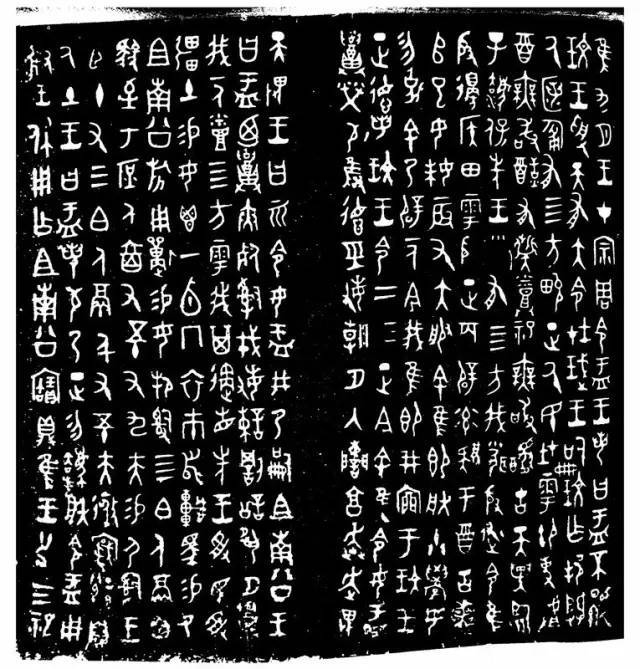 隹九月王才宗周令盂王若曰盂不顯
玟王受天有大令在珷王嗣玟乍邦闢
厥匿匍有四方畯正厥民在雩御事
酉無敢酖有祡烝祀無敢古天異臨
子灋保先王有四方我聞殷述令隹
殷邊侯田雩殷正百辟率肄于酉古喪
師已女妹辰有大服余隹即朕小學女
勿克余乃辟一人今我隹即井廩于玟王
正德若玟王令二三正今余隹令女盂
召榮敬雍德巠敏朝夕入諫享奔走畏
天畏王曰令女盂井乃嗣且南公王
曰盂廼召夾死司戎敏諫罰訟夙夕召
我一人烝四方雩我其遹省先王受民受
疆土易女鬯一卣冂衣巿舄車馬易乃
且南公旂用狩易女邦司四白人鬲自
馭至于庶人六百又五十又九夫易尸司王
臣十又三白人鬲千又五十夫寏遷自
厥土王曰盂若敬乃正勿灋朕令盂用
對王休用乍且南公寶鼎隹王廿又三祀